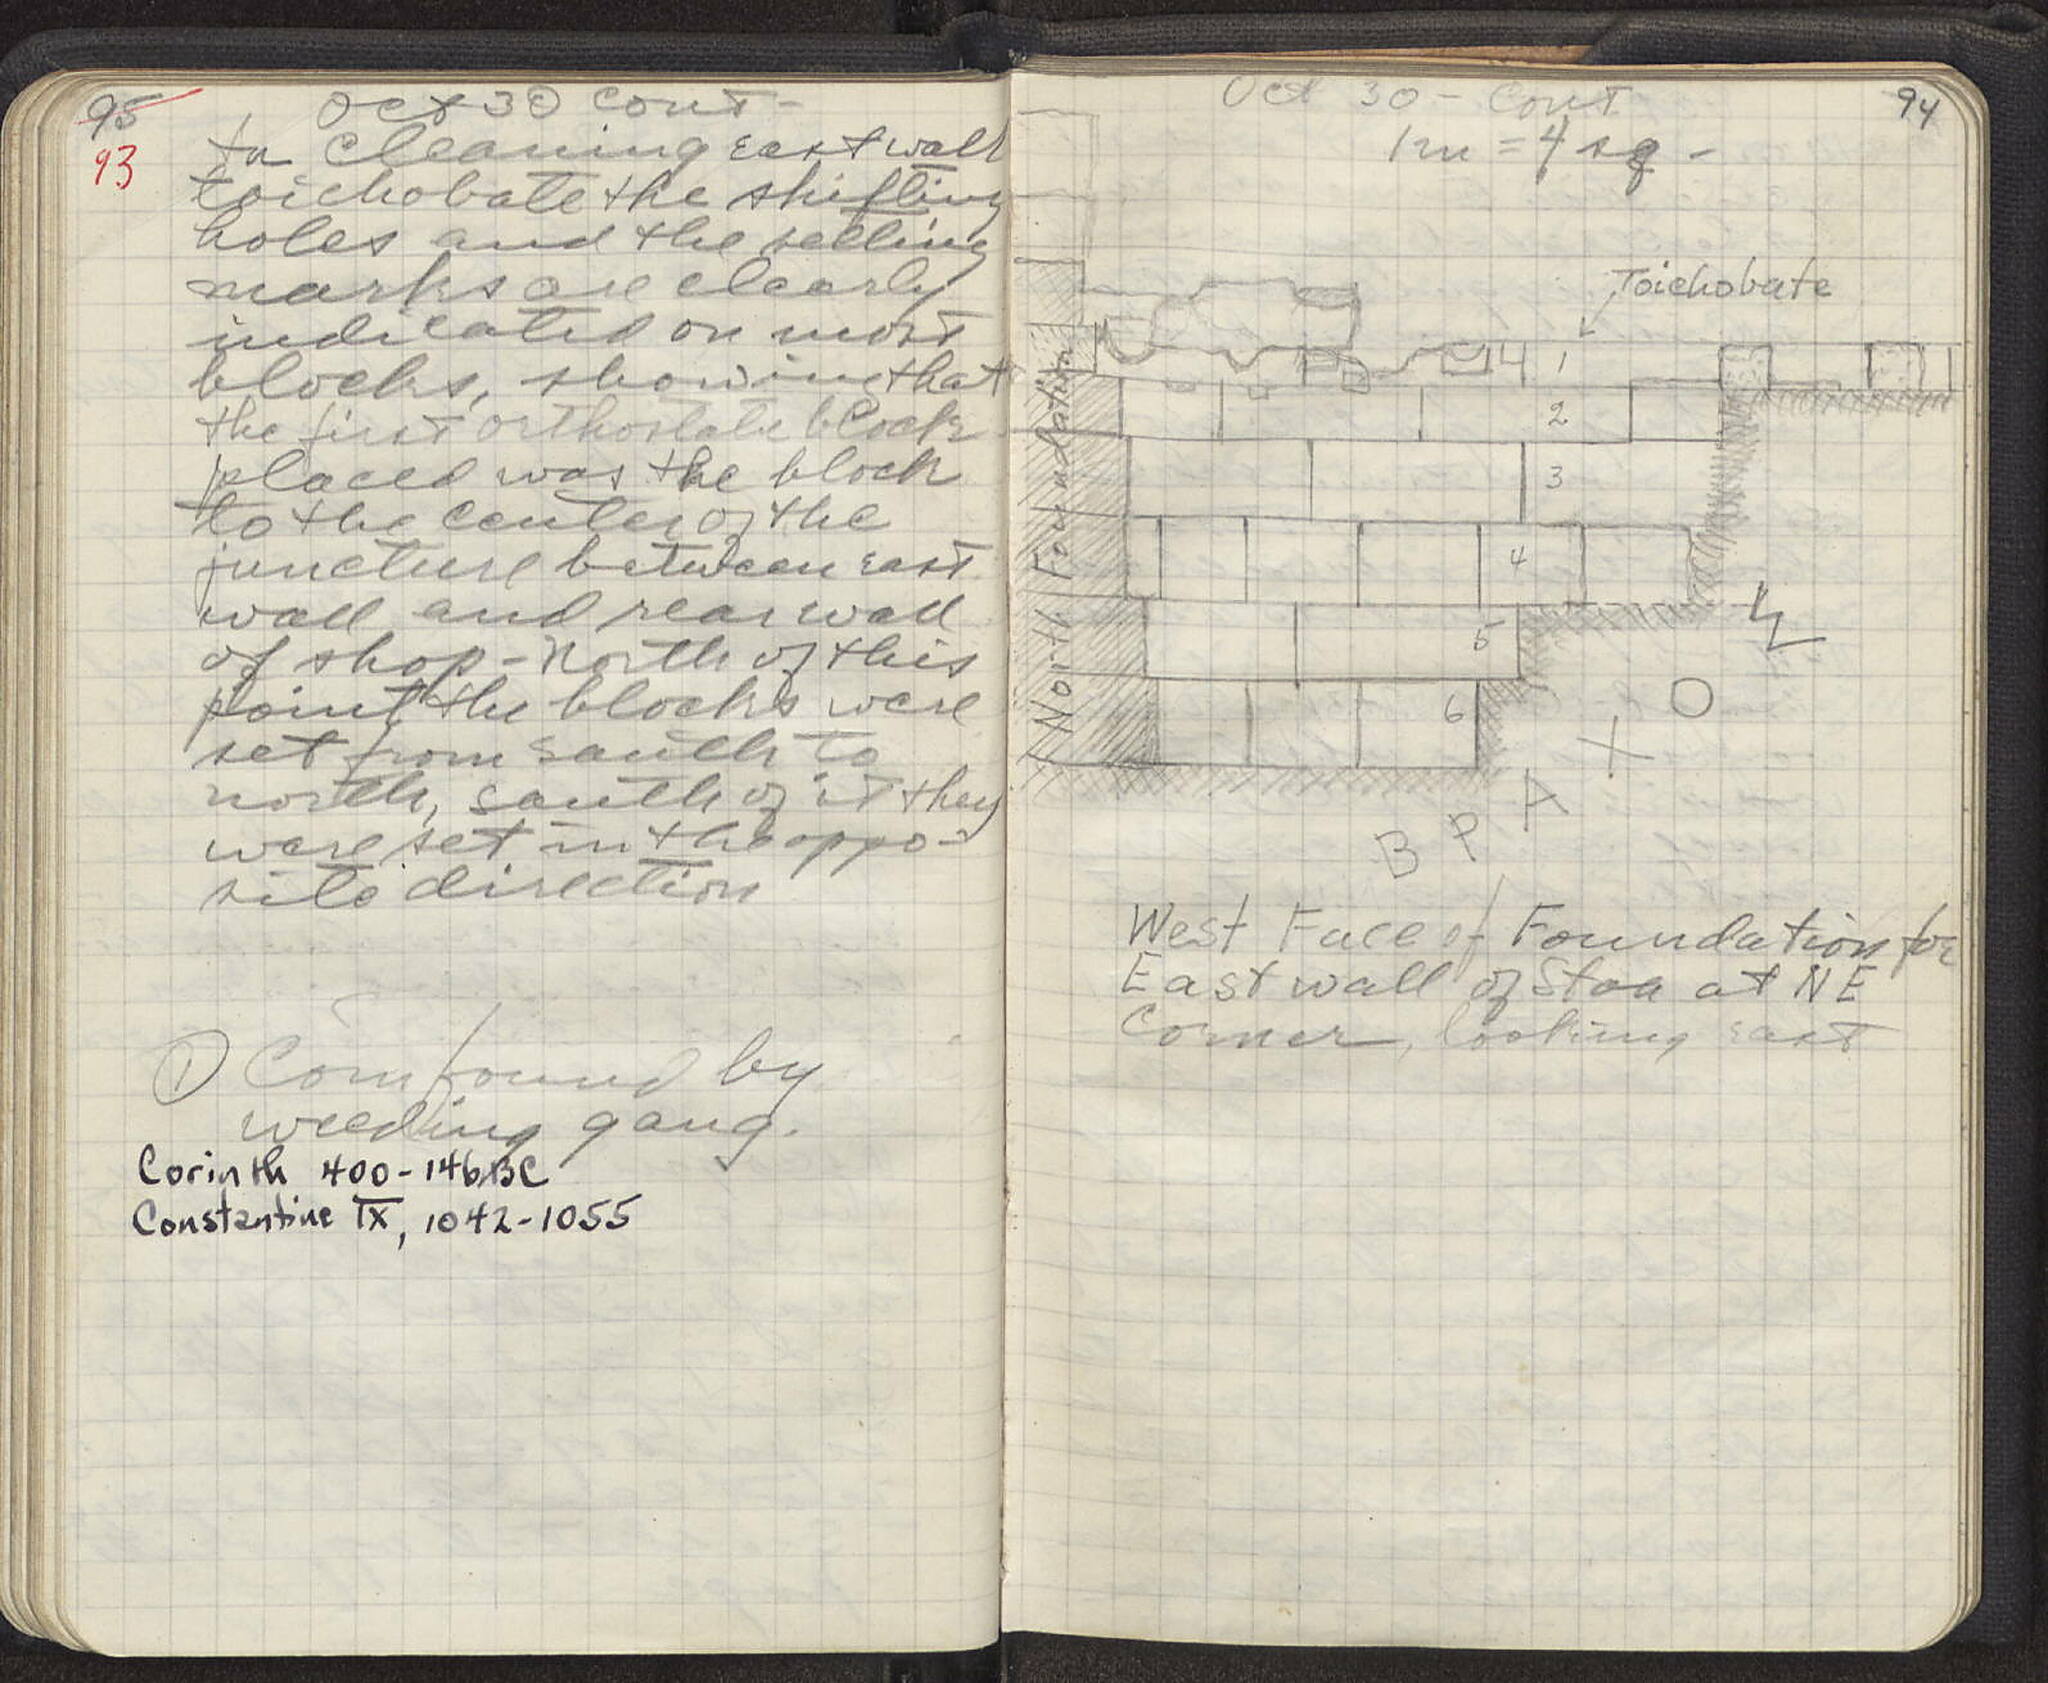 95
93
Oct 30 cont -
In cleaning east wall
toichobate the shifting
holes and the setting
marks are clearly
indicated on most
blocks, showing that
the first orthostate block
placed was the block
to the center of the
juncture between east
wall and rear wall
of shop - North of this
point the blocks were
set from south to
north, south of it they
were set in the oppo-
site direction
① Coin found by
weeding gang.
Corinth 400-146 BC
Constantine IX, 1042-1055
Oct 30 - Cont
94
1m = 4 sq -
Toichobate
1
2
3
4
5
6
North Foundation
B P A X O Σ
West Face of Foundation for
East wall of Stoa at NE
Corner, looking east